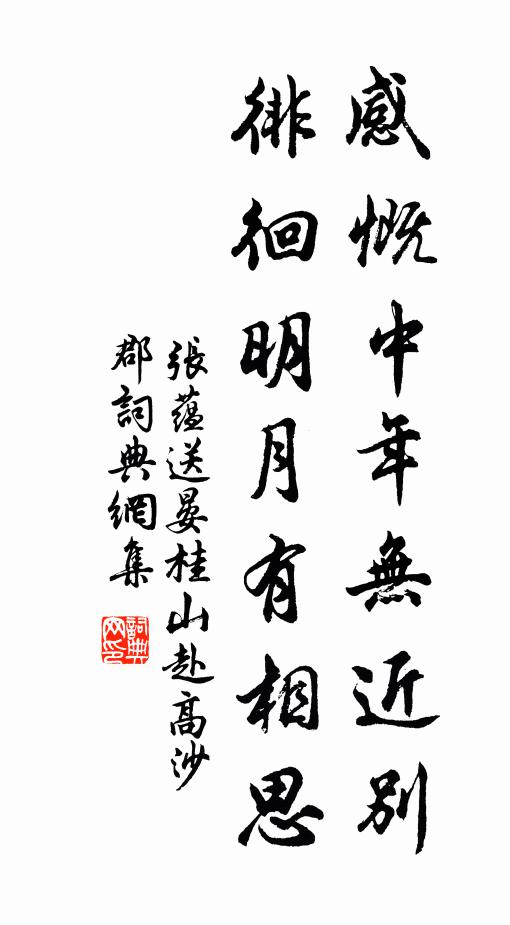 感慨中年無近別
徘徊明月有相思
張蘊送晏桂山赴高沙
郡詞典網集
詞典网印